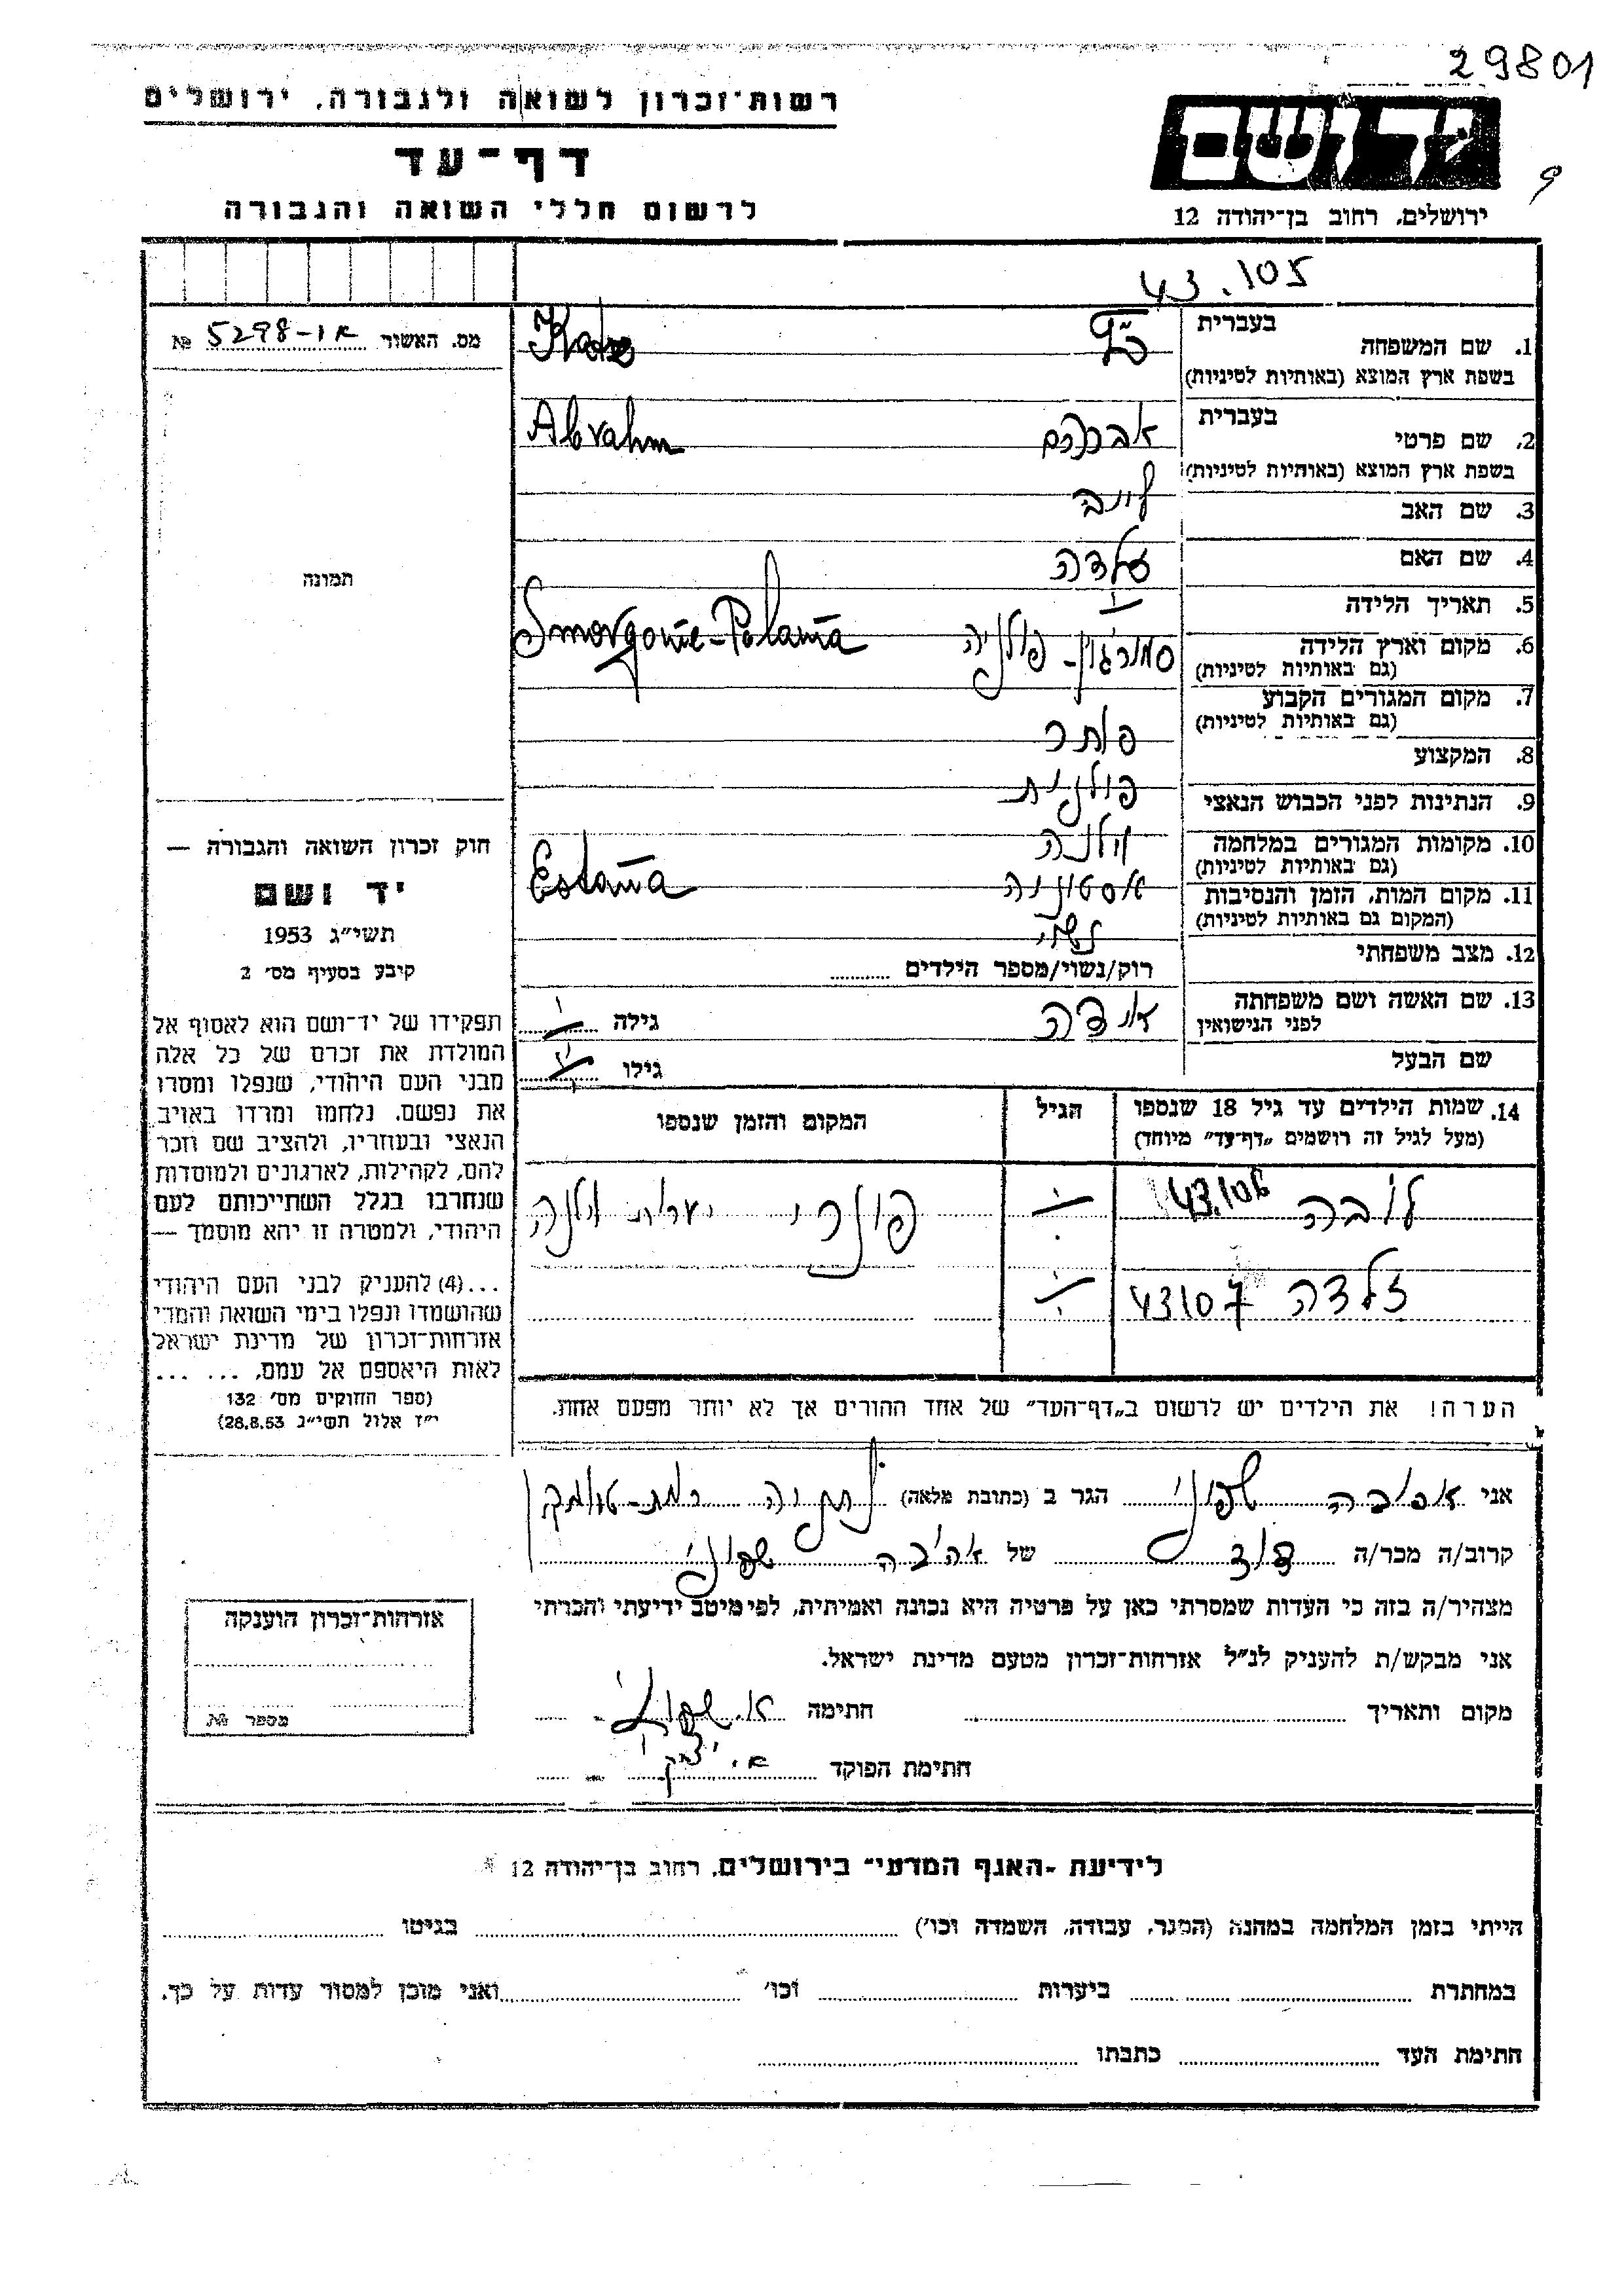 29801
רשות־זכרון לשואה ולגבורה, ירושלים
דף־עד
לרשום חללי השואה והגבורה
יד ושם
ירושלים, רחוב בן־יהודה 12
43.105
מס. האשור 5298-א1 №
1. שם המשפחה
בעברית כ"ץ Katz
בשפת ארץ המוצא (באותיות לטיניות)
2. שם פרטי
בעברית אברהם Abrahm
בשפת ארץ המוצא (באותיות לטיניות)
3. שם האב ליובה
4. שם האם זלדה
5. תאריך הלידה
6. מקום וארץ הלידה סמורגון - פולניה Smorgonie-Polania
(גם באותיות לטיניות)
7. מקום המגורים הקבוע
(גם באותיות לטיניות)
8. המקצוע
9. הנתינות לפני הכבוש הנאצי פולנית
10. מקומות המגורים במלחמה וילנה
(גם באותיות לטיניות)
11. מקום המות, הזמן והנסיבות אסטוניה Estania
(המקום גם באותיות לטיניות)
12. מצב משפחתי נשוי
רוק/נשוי/מספר הילדים
13. שם האשה ושם משפחתה
לפני הנישואין
גילה
שם הבעל
גילו
תמונה
חוק זכרון השואה והגבורה —
יד ושם
תשי"ג 1953
קיבע בסעיף מס' 2
תפקידו של יד־ושם הוא לאסוף אל
המולדת את זכרם של כל אלה
מבני העם היהודי, שנפלו ומסרו
את נפשם, נלחמו ומרדו באויב
הנאצי ובעוזריו, ולהציב שם וזכר
להם, לקהילות, לארגונים ולמוסדות
שנחרבו בגלל השתייכותם לעם
היהודי, ולמטרה זו יהא מוסמך —
...(4) להעניק לבני העם היהודי
שהושמדו ונפלו בימי השואה והמרי
אזרחות־זכרון של מדינת ישראל
לאות היאספם אל עמם. ... ...
(ספר החוקים מס' 132
י"ז אלול תשי"ג 28.8.53)
14. שמות הילדים עד גיל 18 שנספו הגיל המקום והזמן שנספו
(מעל לגיל זה רושמים „דף־עד" מיוחד)
לובה 43.106 פונרי יערות וילנה
זלדה 43107
הערה! את הילדים יש לרשום ב„דף־העד" של אחד ההורים אך לא יותר מפעם אחת.
אני הגר ב (כתובת מלאה) נתניה
קרוב/ה מכר/ה דוד של
מצהיר/ה בזה כי העדות שמסרתי כאן על פרטיה היא נכונה ואמיתית, לפי מיטב ידיעתי והכרתי
אני מבקש/ת להעניק לנ"ל אזרחות־זכרון מטעם מדינת ישראל.
מקום ותאריך חתימה
חתימת הפוקד
אזרחות־זכרון הוענקה
מספר №
לידיעת -האגף המדעי" בירושלים, רחוב בן־יהודה 12
הייתי בזמן המלחמה במחנה (הסגר, עבודה, השמדה וכו') בגיטו
במחתרת ביערות וכו' ואני מוכן למסור עדות על כך.
חתימת העד כתבתו